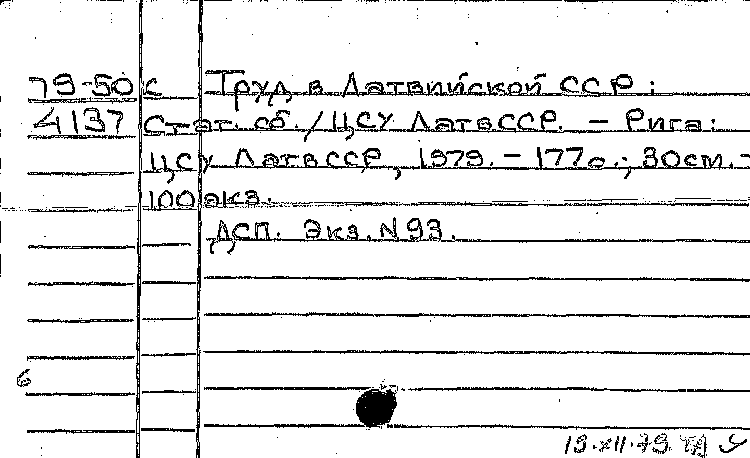 79-50 с Труд в Латвийской ССР :
4137 Стат. сб. / ЦСУ ЛатвССР. – Рига:
ЦСУ ЛатвССР, 1979. – 177с.; 30см. –
100 экз.
ДСП. Экз. N 93.
6
19.XII.79.